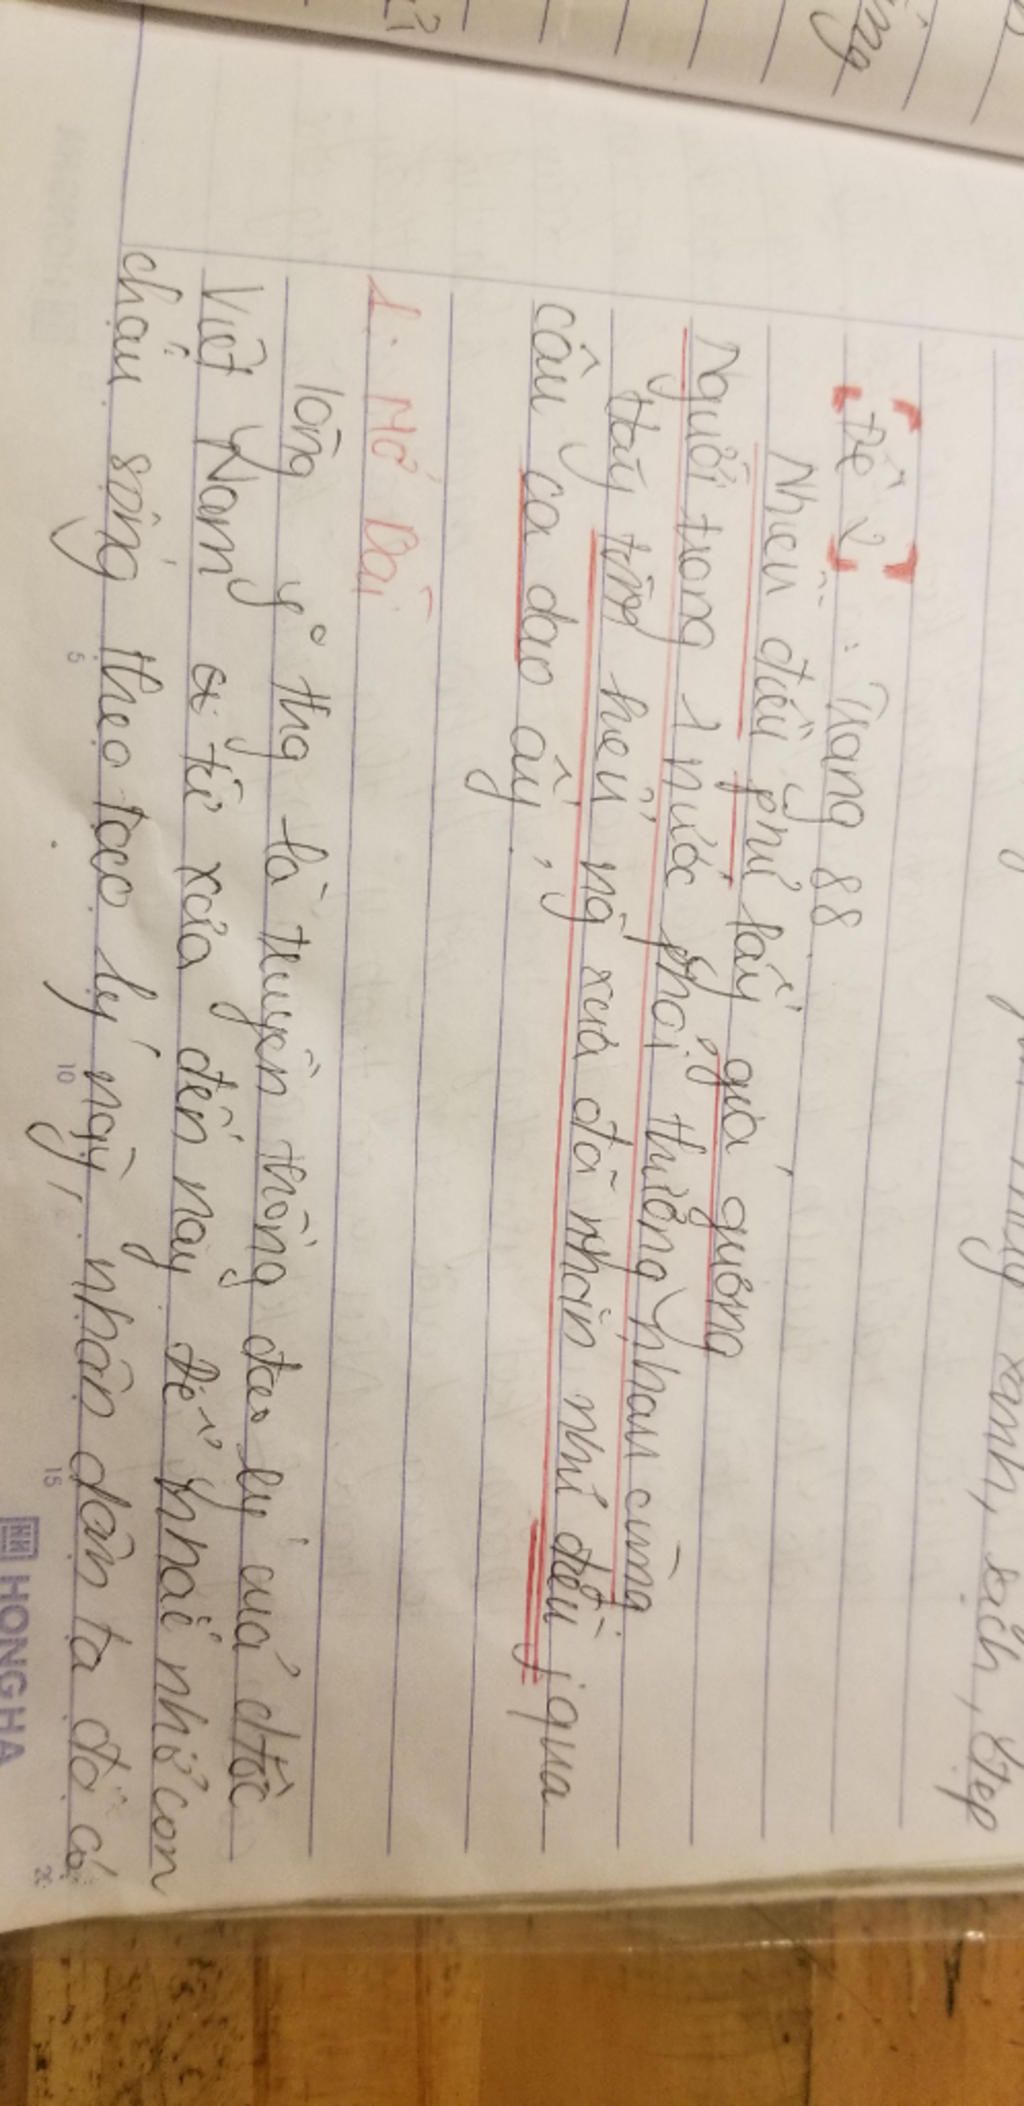 xanh, sạch, đẹp
Đề 2: Trang 88
Nhiễu điều phủ lấy giá gương
Người trong 1 nước phải thương nhau cùng
Hãy tìm hểu ng xưa đã nhắn nhủ điều j qua
câu ca dao ấy.
1. Mở Bài
lòng y thg là truyền thống đạo lý của dtộc
Việt Nam ta từ xưa đến nay. Để nhắc nhở con
cháu sống theo đạo lý này, nhân dân ta đã có
5
10
15
20
HONG HA